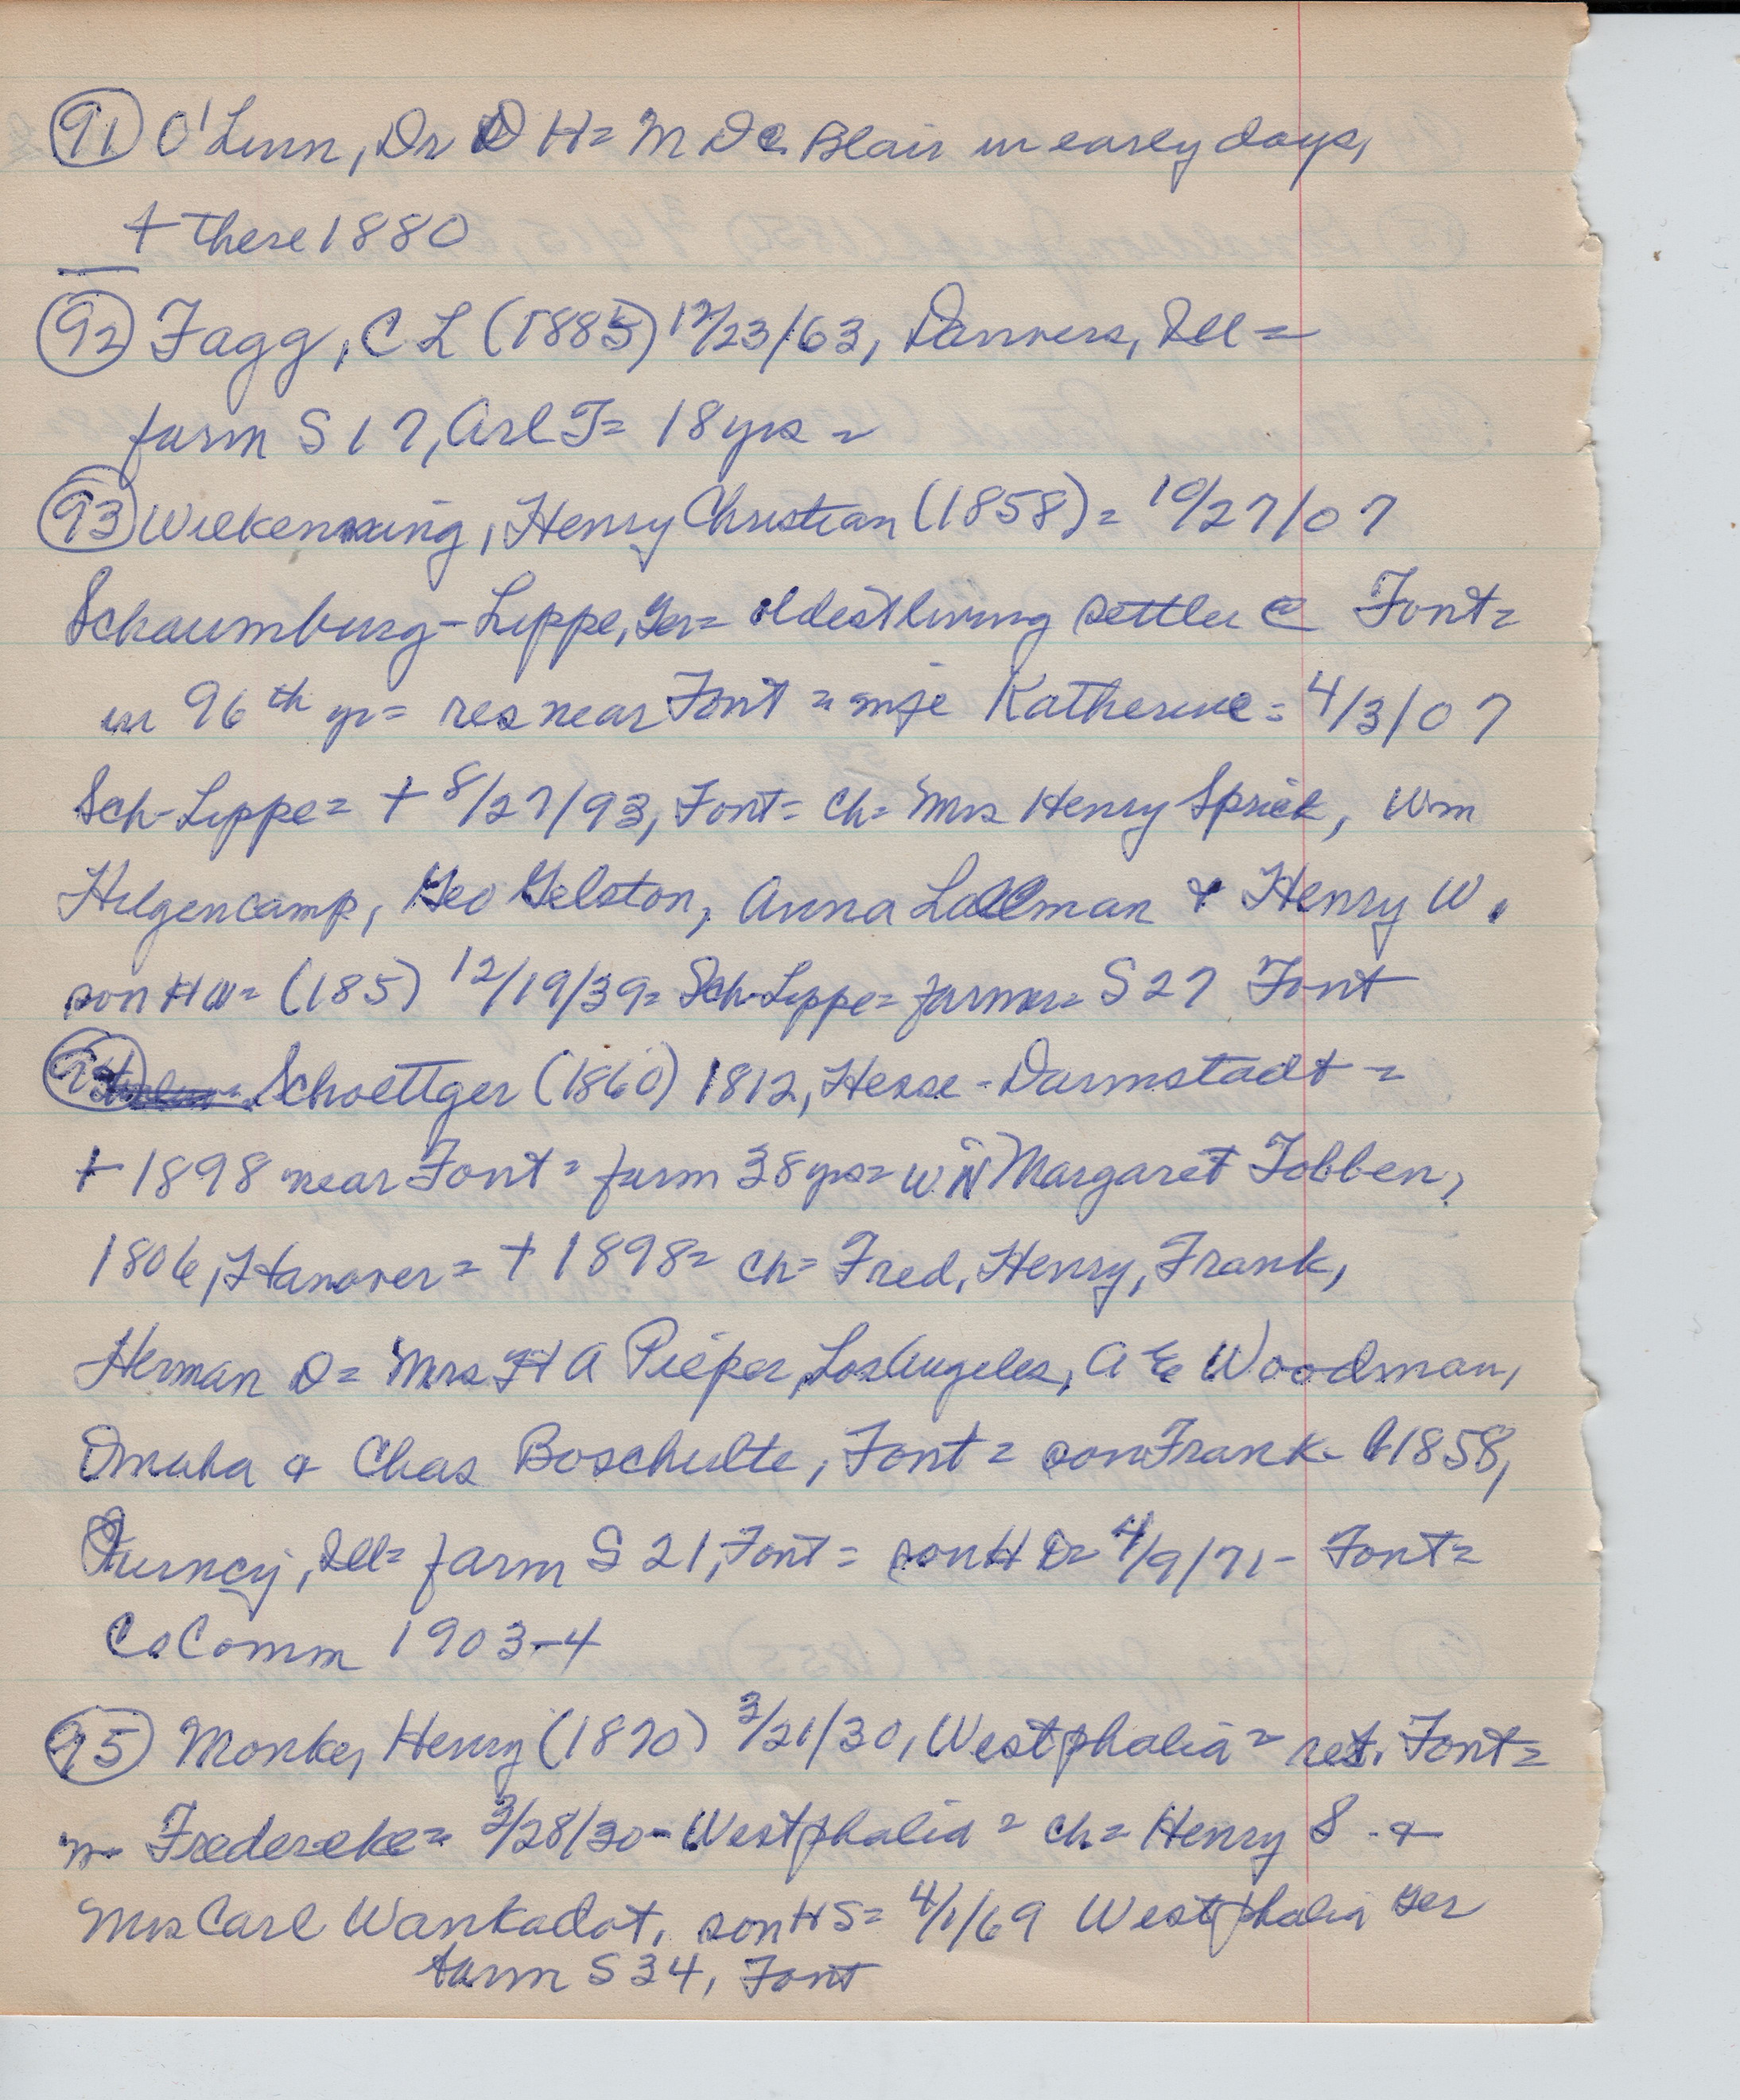 (91) O'Linn, Dr D H = M D @ Blair in early days,
+ there 1880
(92) Fagg, C L (1885) 12/23/63, Danvers, Ill =
farm S 17, Arl T = 18 yrs =
(93) Wilkenning, Henry Christian (1858) = 10/27/07
Schaumburg-Lippe, Ger = oldest living settler @ Font =
in 96th yr = res near Font = Katherine = 4/3/07
Sch-Lippe = + 8/27/93, Font = ch = Mrs Henry Sprick, Wm
Hilgencamp, Geo Gelston, Anna Lallman & Henry W.
son H W = (185 ) 12/19/39 = Sch-Lippe = farmer = S 27 Font
(94) Schoettger (1860) 1812, Hesse-Darmstadt =
+ 1898 near Font = farm 38 yrs = Margaret Tobben,
1806, Hanover = + 1898 = ch = Fred, Henry, Frank,
Herman D = Mrs H A Pieper, Los Angeles, A E Woodman,
Omaha & Chas Boschulte, Font = son Frank - b 1858,
Quincy, Ill = farm S 21, Font = son H D = 4/9/71 - Font =
Co Comm 1903-4
(95) Monke, Henry (1870) 3/21/30, Westphalia = ret. Font =
m - Fredereke = 3/28/30 - Westphalia = ch = Henry S. &
Mrs Carl Wankadot, son H S = 4/1/69 Westphalia Ger
farm S 34, Font